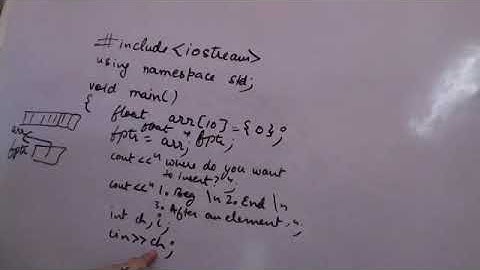 #include <iostream>
using namespace std;
void main()
{
float arr[10] = {0};
float * fptr;
fptr = arr;
cout << "where do you want
to insert?";
cout << "1. Beg \n 2. End \n
3. After an element.";
int ch, i;
cin >> ch;
arr
fptr